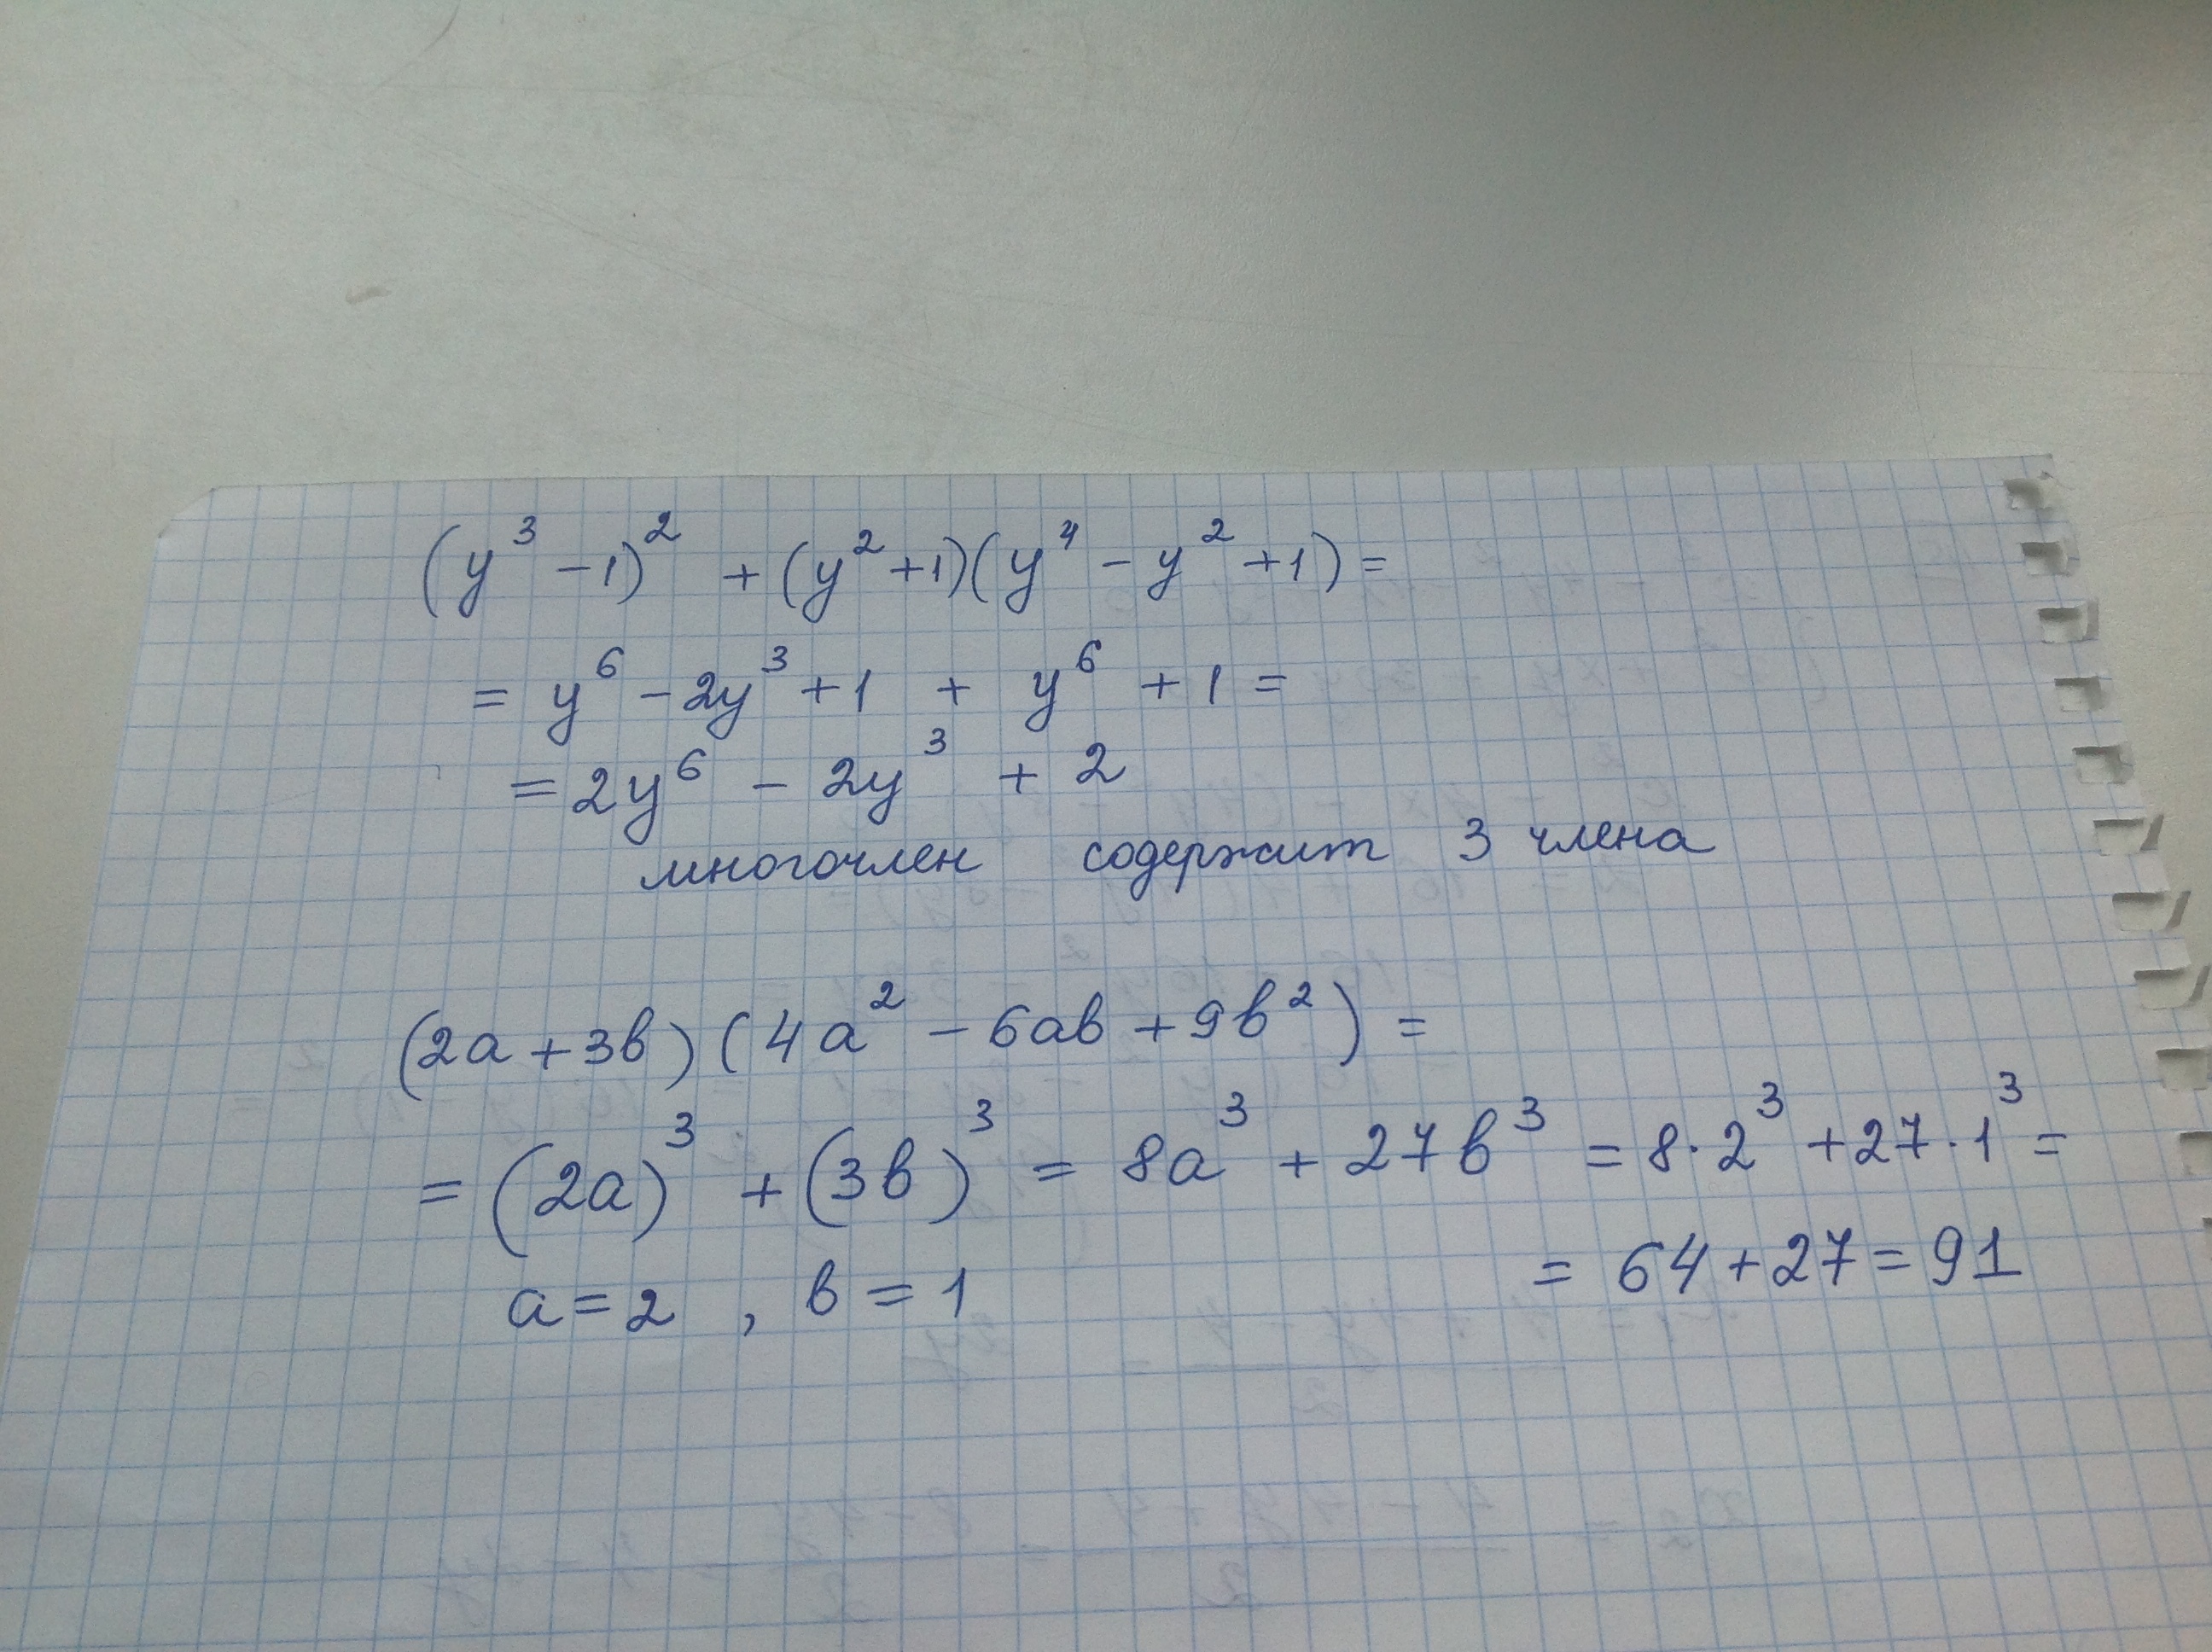 (y³ - 1)² + (y² + 1)(y⁴ - y² + 1) =
= y⁶ - 2y³ + 1 + y⁶ + 1 =
= 2y⁶ - 2y³ + 2
многочлен содержит 3 члена
(2a + 3b)(4a² - 6ab + 9b²) =
= (2a)³ + (3b)³ = 8a³ + 27b³ = 8·2³ + 27·1³ =
= 64 + 27 = 91
a = 2, b = 1